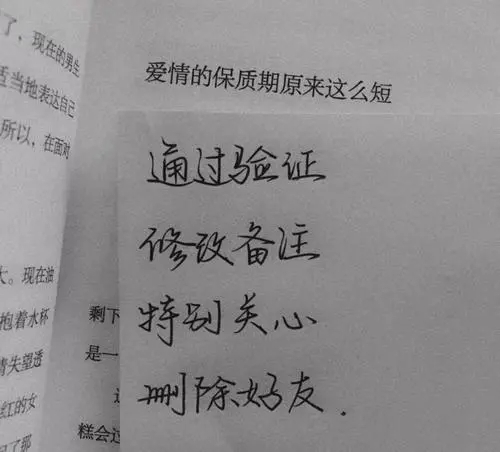 了，现在的男生
适当地表达自己
所以，在面对
大。现在油
抱着水杯
情失望透
红的女
了那
爱情的保质期原来这么短
通过验证
修改备注
特别关心
删除好友.
剩下
是一
糕会过